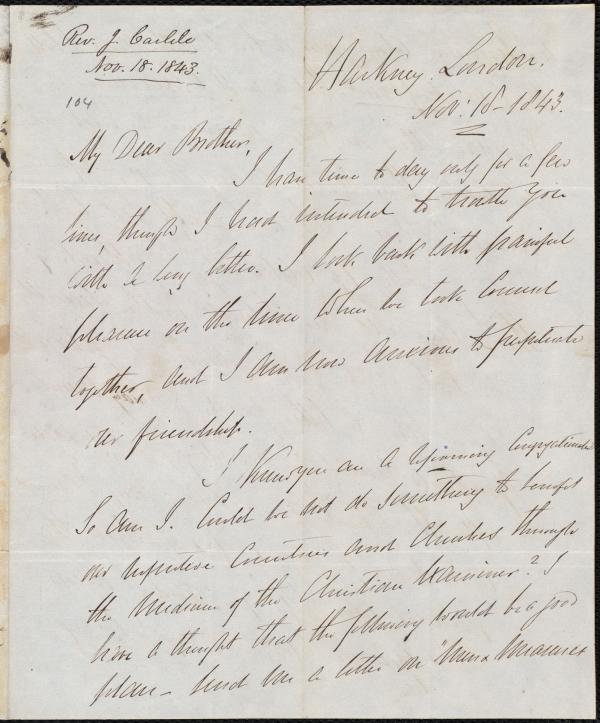 Rev. J. Carlile
Nov. 18. 1843.
104
Hackney. London.
Nov: 18 - 1843.
My Dear Brother,
I have time to day only for a few
lines, though I had intended to trouble you
with a long letter. I look back with painful
pleasure on the time when we took Counsel
together, and I am now anxious to perpetuate
our friendship.
I know you are a reforming Congregationalist
So am I. Could we not do something to benefit
our respective Countries and Churches through
the medium of the Christian Examiner? I
have a thought that the following would be a good
plan - Send me a letter on "Men & Measures